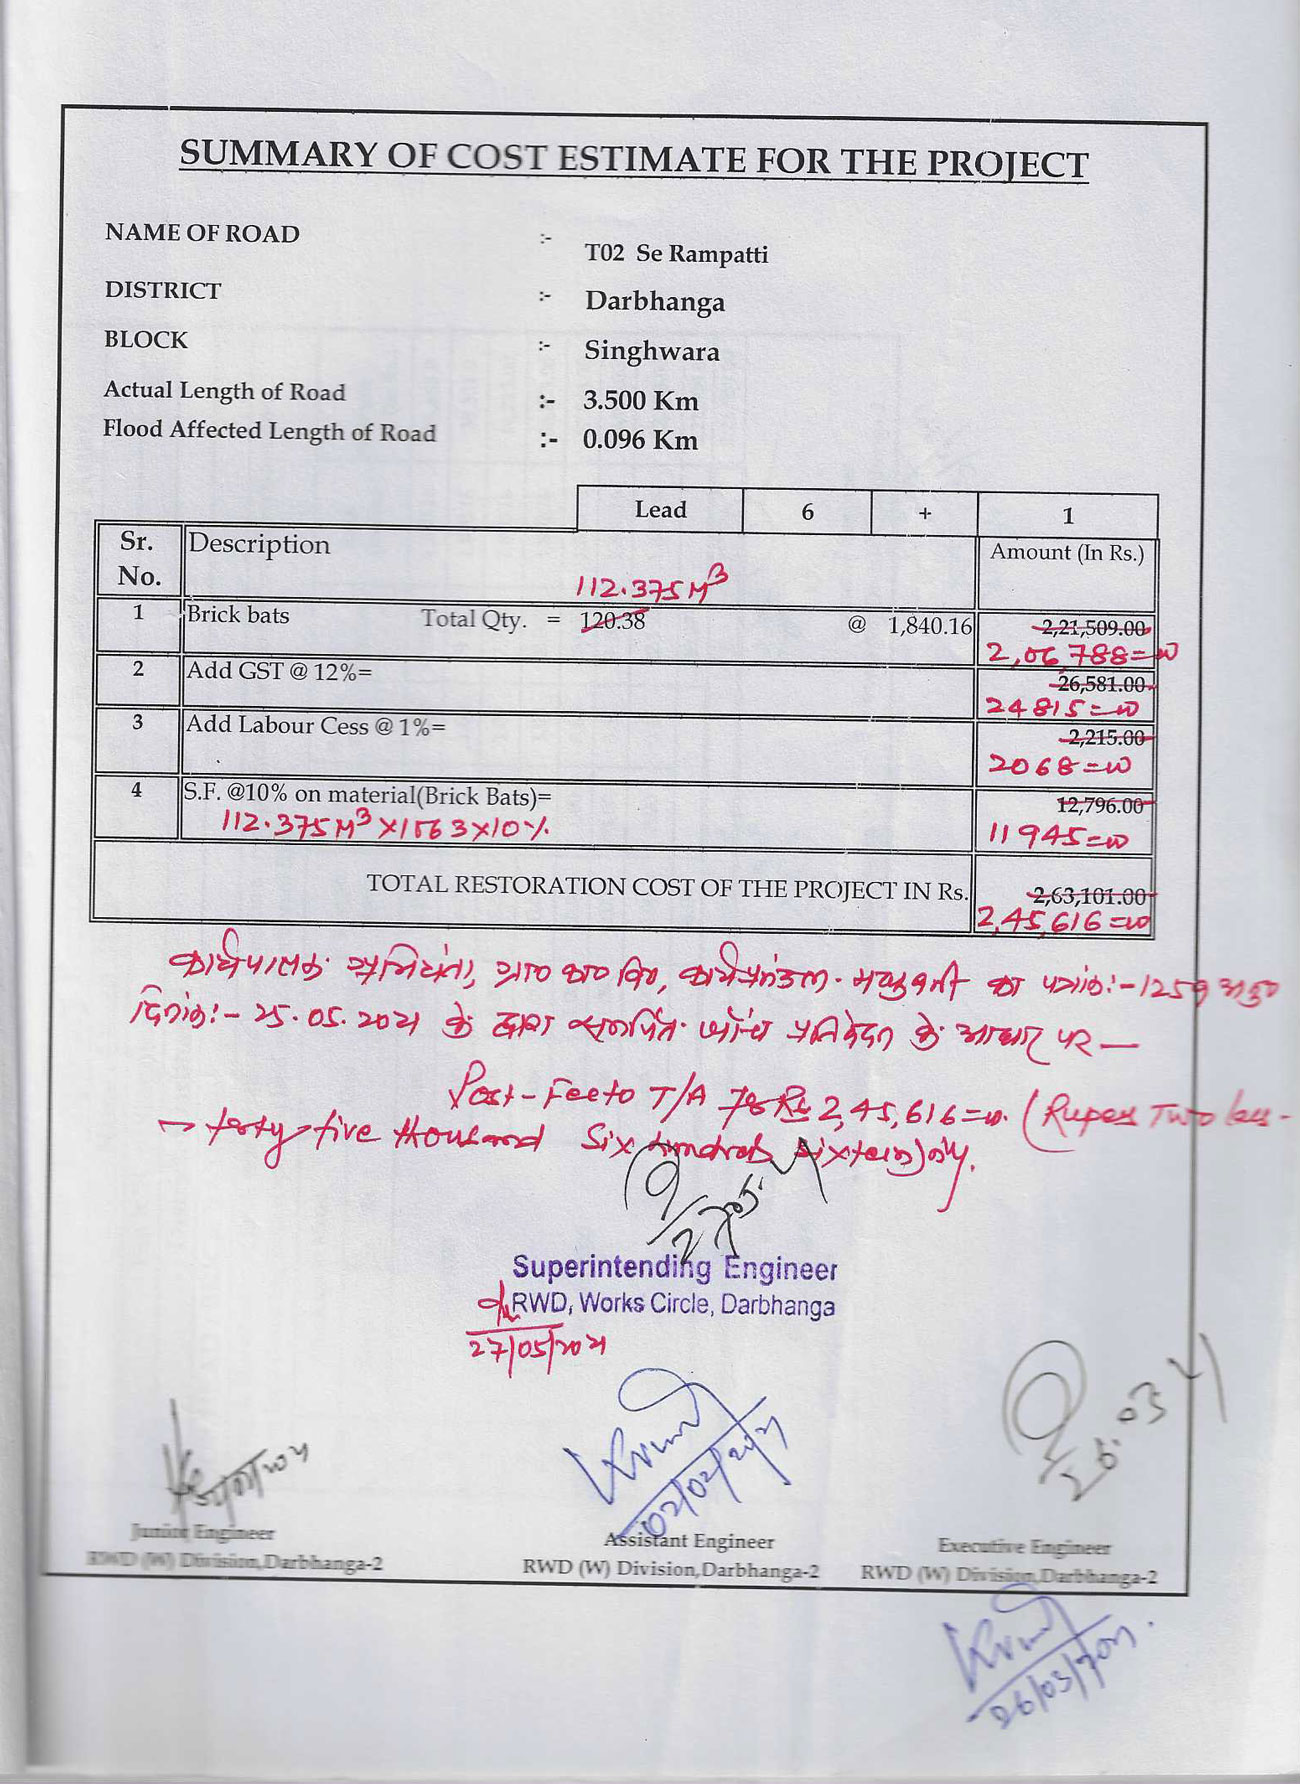 SUMMARY OF COST ESTIMATE FOR THE PROJECT
NAME OF ROAD :- T02 Se Rampatti
DISTRICT :- Darbhanga
BLOCK :- Singhwara
Actual Length of Road :- 3.500 Km
Flood Affected Length of Road :- 0.096 Km
Lead 6 + 1
Sr. No. Description Amount (In Rs.)
112.375 M3
1 Brick bats Total Qty. = 120.38 @ 1,840.16 2,21,509.00
2,06,788=00
2 Add GST @ 12%= 26,581.00
24815=00
3 Add Labour Cess @ 1%= 2,215.00
2068=00
4 S.F. @10% on material(Brick Bats)= 12,796.00
112.375 M3 X1063X10% 11945=00
TOTAL RESTORATION COST OF THE PROJECT IN Rs. 2,63,101.00
2,45,616=00
कार्यपालक अभियंता, ग्रा० का० वि०, कार्य प्रमंडल का पत्रांक:-1259 अनु०
दिनांक:- 25.05.2021 के द्वारा समर्पित जाँच प्रतिवेदन के आधार पर —
Post-Fecto T/A for Rs 2,45,616=00. (Rupees Two lacs-
forty five thousand Six hundred Sixteen) only.
27/05
Superintending Engineer
RWD, Works Circle, Darbhanga
27/05/2021
02/02/2021
26.03
Junior Engineer
RWD (W) Division,Darbhanga-2
Assistant Engineer
RWD (W) Division,Darbhanga-2
Executive Engineer
RWD (W) Division,Darbhanga-2
26/03/2021